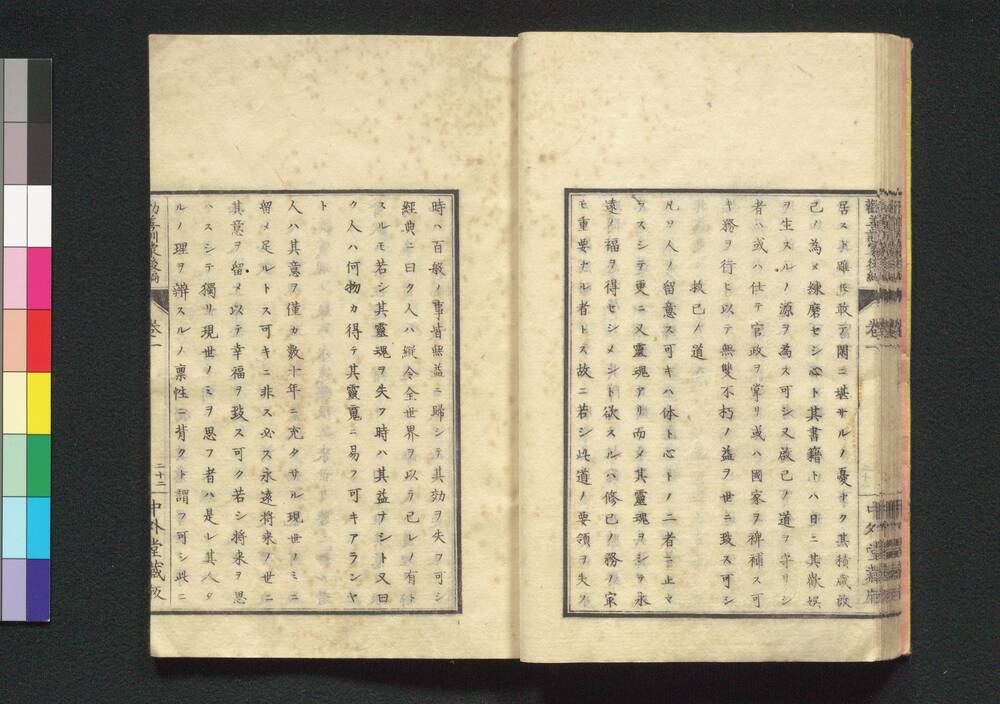 居ストイヘ雖モ敢テ閑ニ堪サルノ憂ナク其積蔵故
己ノ為メ練磨セシ心ト其書籍トハ日ニ其歡娯
ヲ生スルノ源ヲ為ス可シ又啟己ノ道ヲ守リシ
者ハ或ハ仕テ官政ヲ掌リ或ハ國家ヲ裨補ス可
キ務ヲ行ヒ以テ無雙不朽ノ益ヲ世ニ致ス可シ
救己ノ道
凡ソ人ノ留意ス可キハ体ト心トノ二者ニ止マ
ラスシテ更ニ又靈魂アリ而メ其靈魂ヲシテ永
遠ノ福ヲ得セシメント欲スルハ修己ノ務ノ冣
モ重要ナル者トス故ニ若シ此道ノ要領ヲ失ス
時ハ百般ノ事皆無益ニ歸シテ其効ヲ失フ可シ
經典ニ曰ク人ハ縱令全世界ヲ以テ己レノ有ト
スルモ若シ其靈魂ヲ失フ時ハ其益ナシト又曰
ク人ハ何物カ得テ其靈魂ニ易フ可キアランヤ
ト
人ハ其意ヲ僅カ數十年ニ充タサル現世ノミニ
留メ足ルトス可キニ非ス必ス永遠將来ノ世ニ
其意ヲ留メ以テ幸福ヲ致ス可ク若シ將来ヲ思
ハスシテ獨リ現世ノミヲ思フ者ハ是レ其人タ
ルノ理ヲ辨スルノ禀性ニ背クト謂フ可シ此ニ
卷一
二十二
中外堂藏板